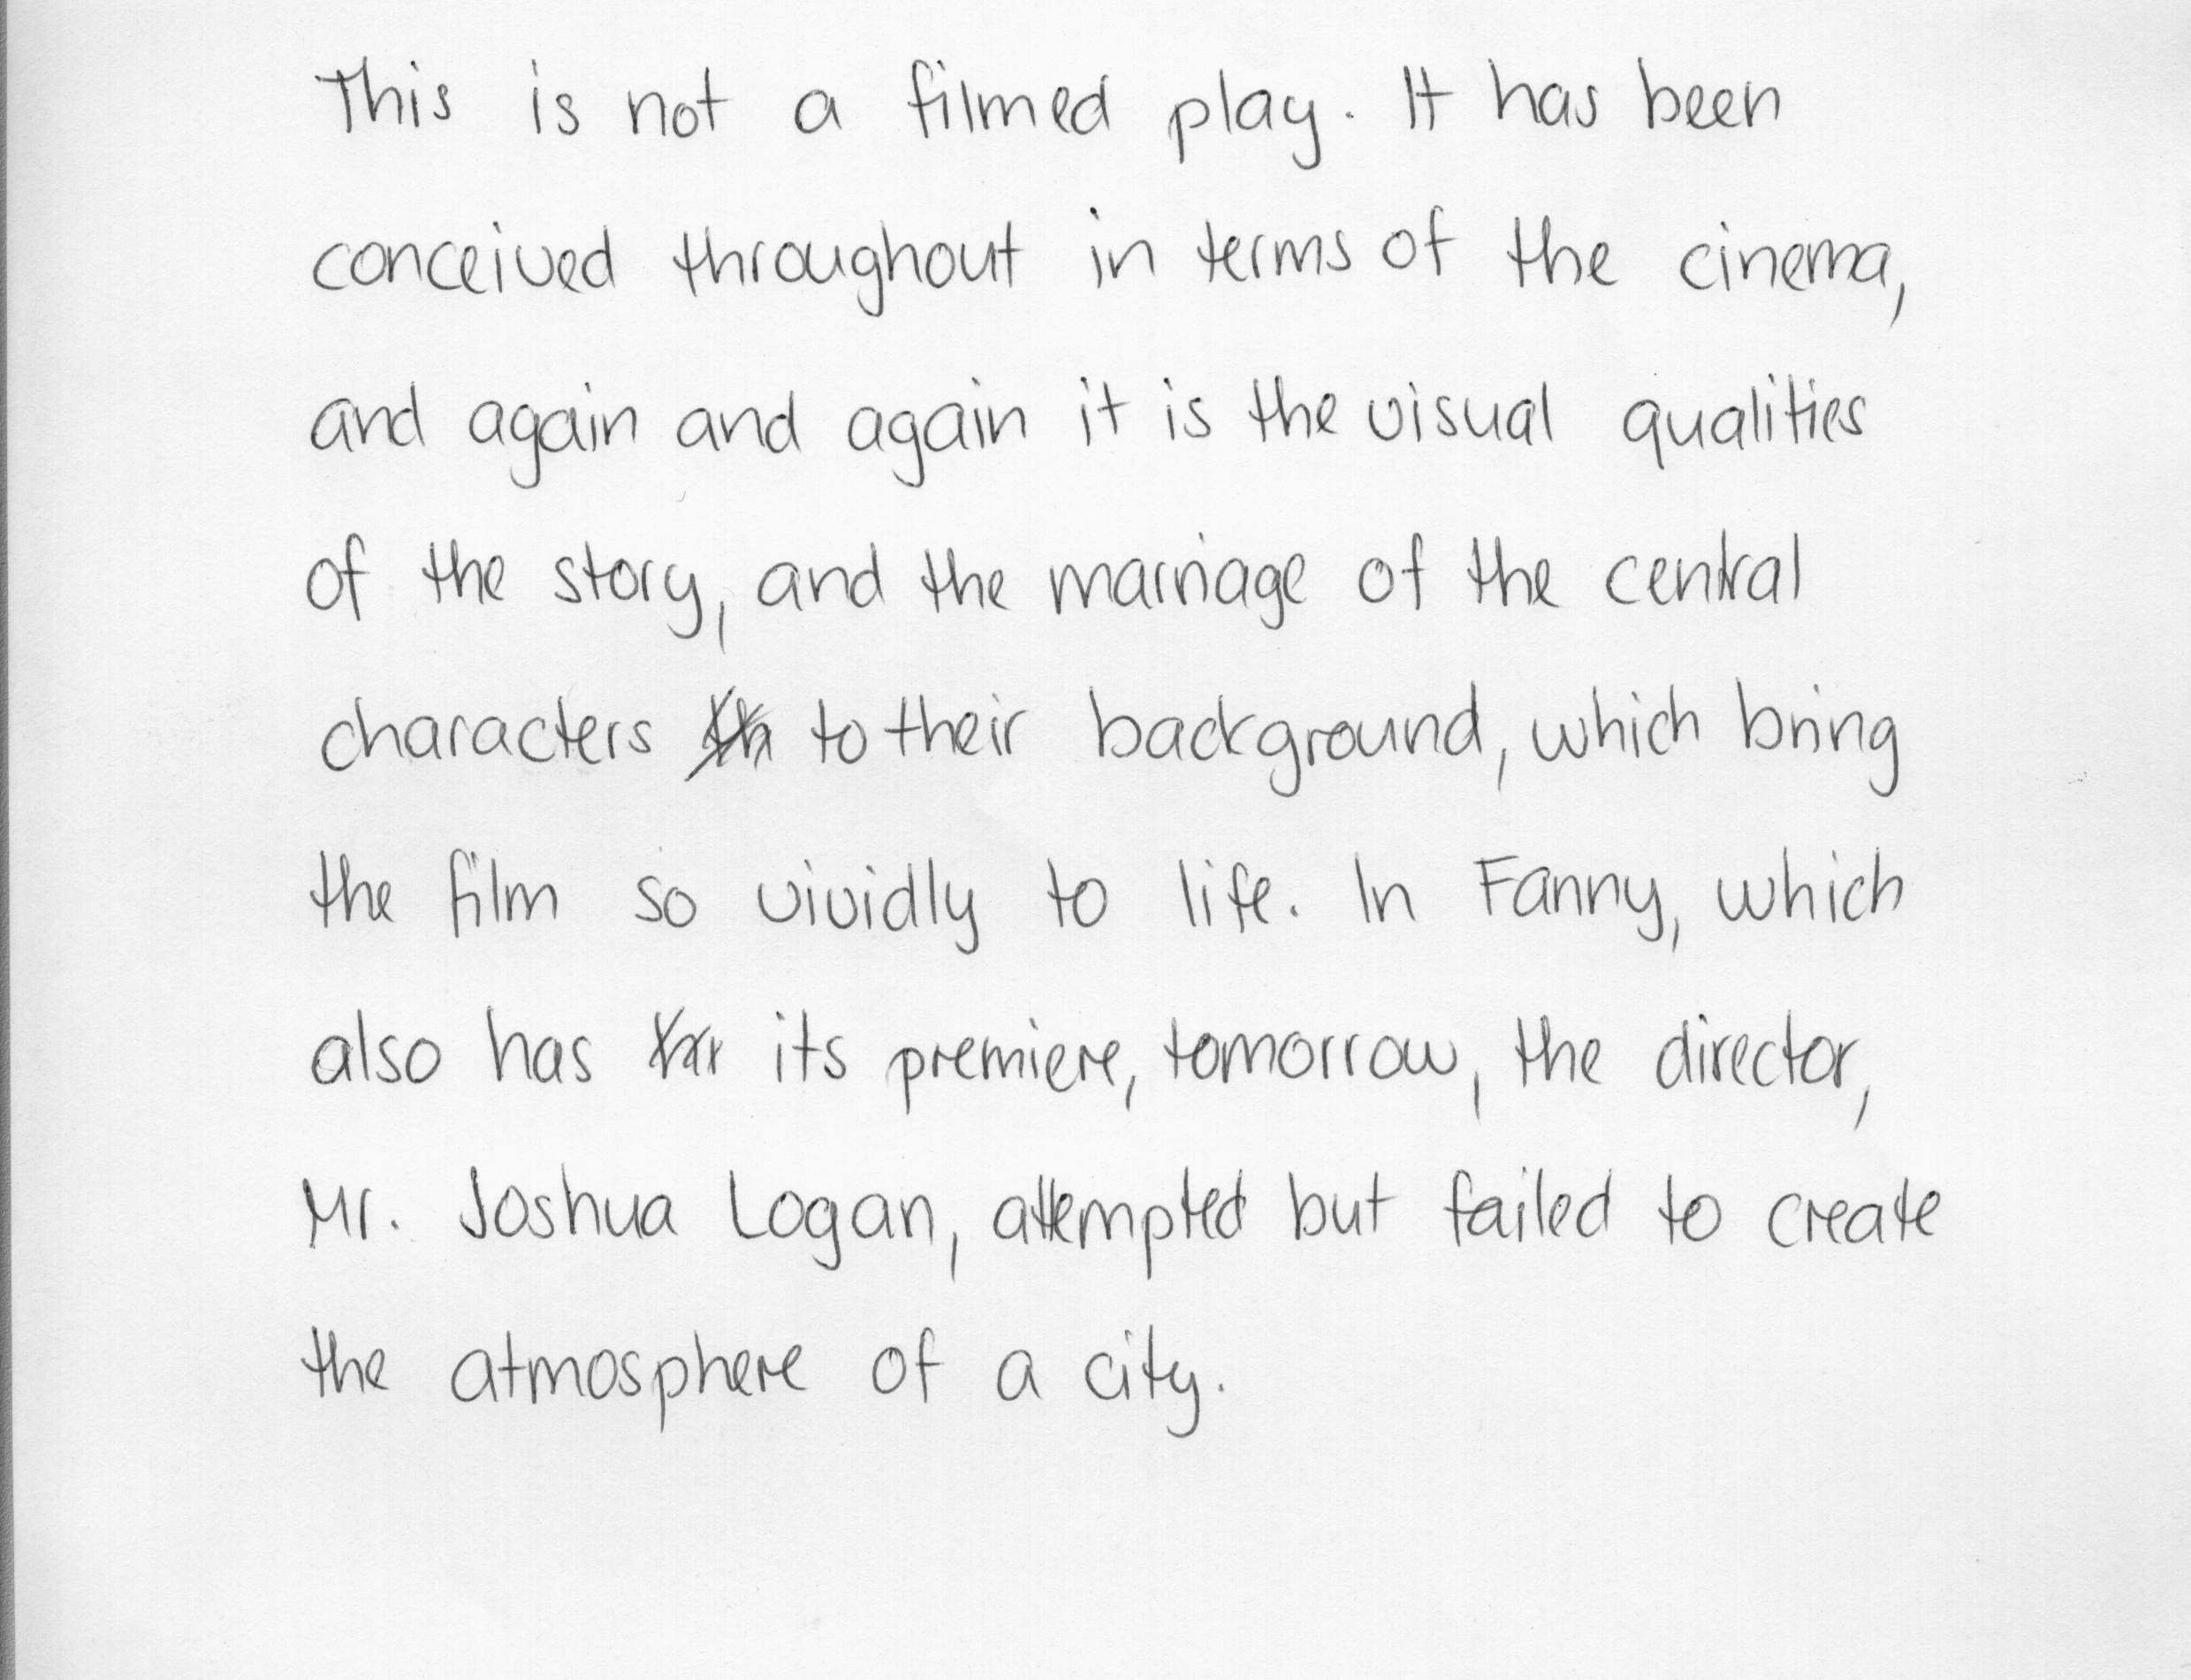 This is not a filmed play. It has been
conceived throughout in terms of the cinema,
and again and again it is the visual qualities
of the story, and the marriage of the central
characters to their background, which bring
the film so vividly to life. In Fanny, which
also has its premiere, tomorrow, the director,
Mr. Joshua Logan, attempted but failed to create
the atmosphere of a city.